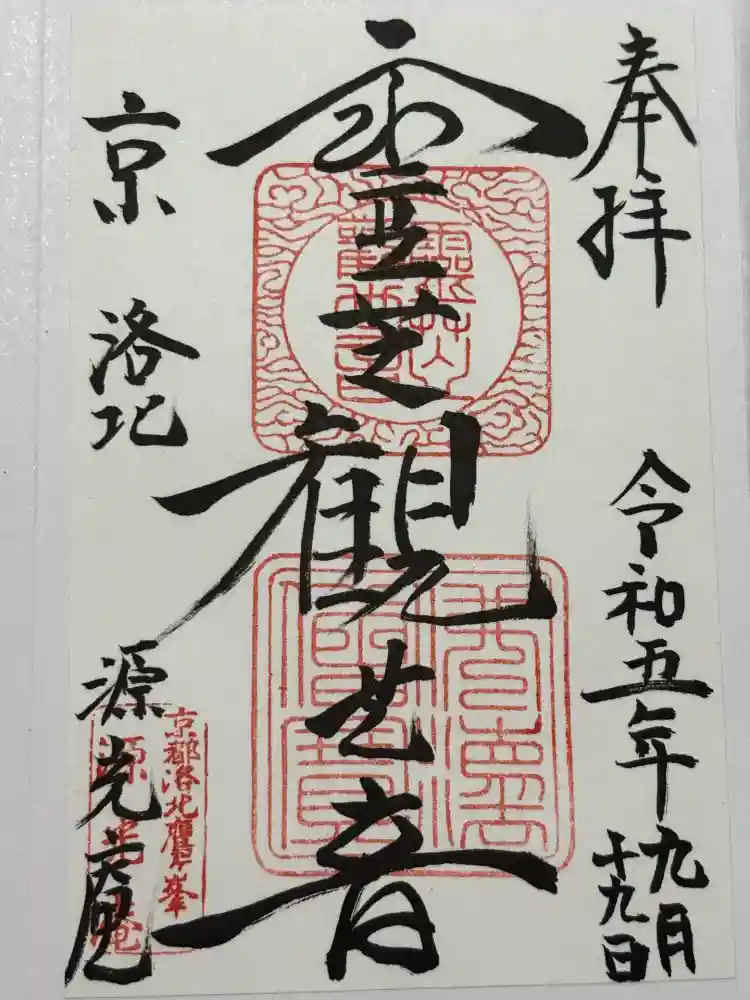 奉拝
令和五年九月
十九日
霊芝観世音
京 洛北 源光庵
京都洛北鷹峯
源光庵